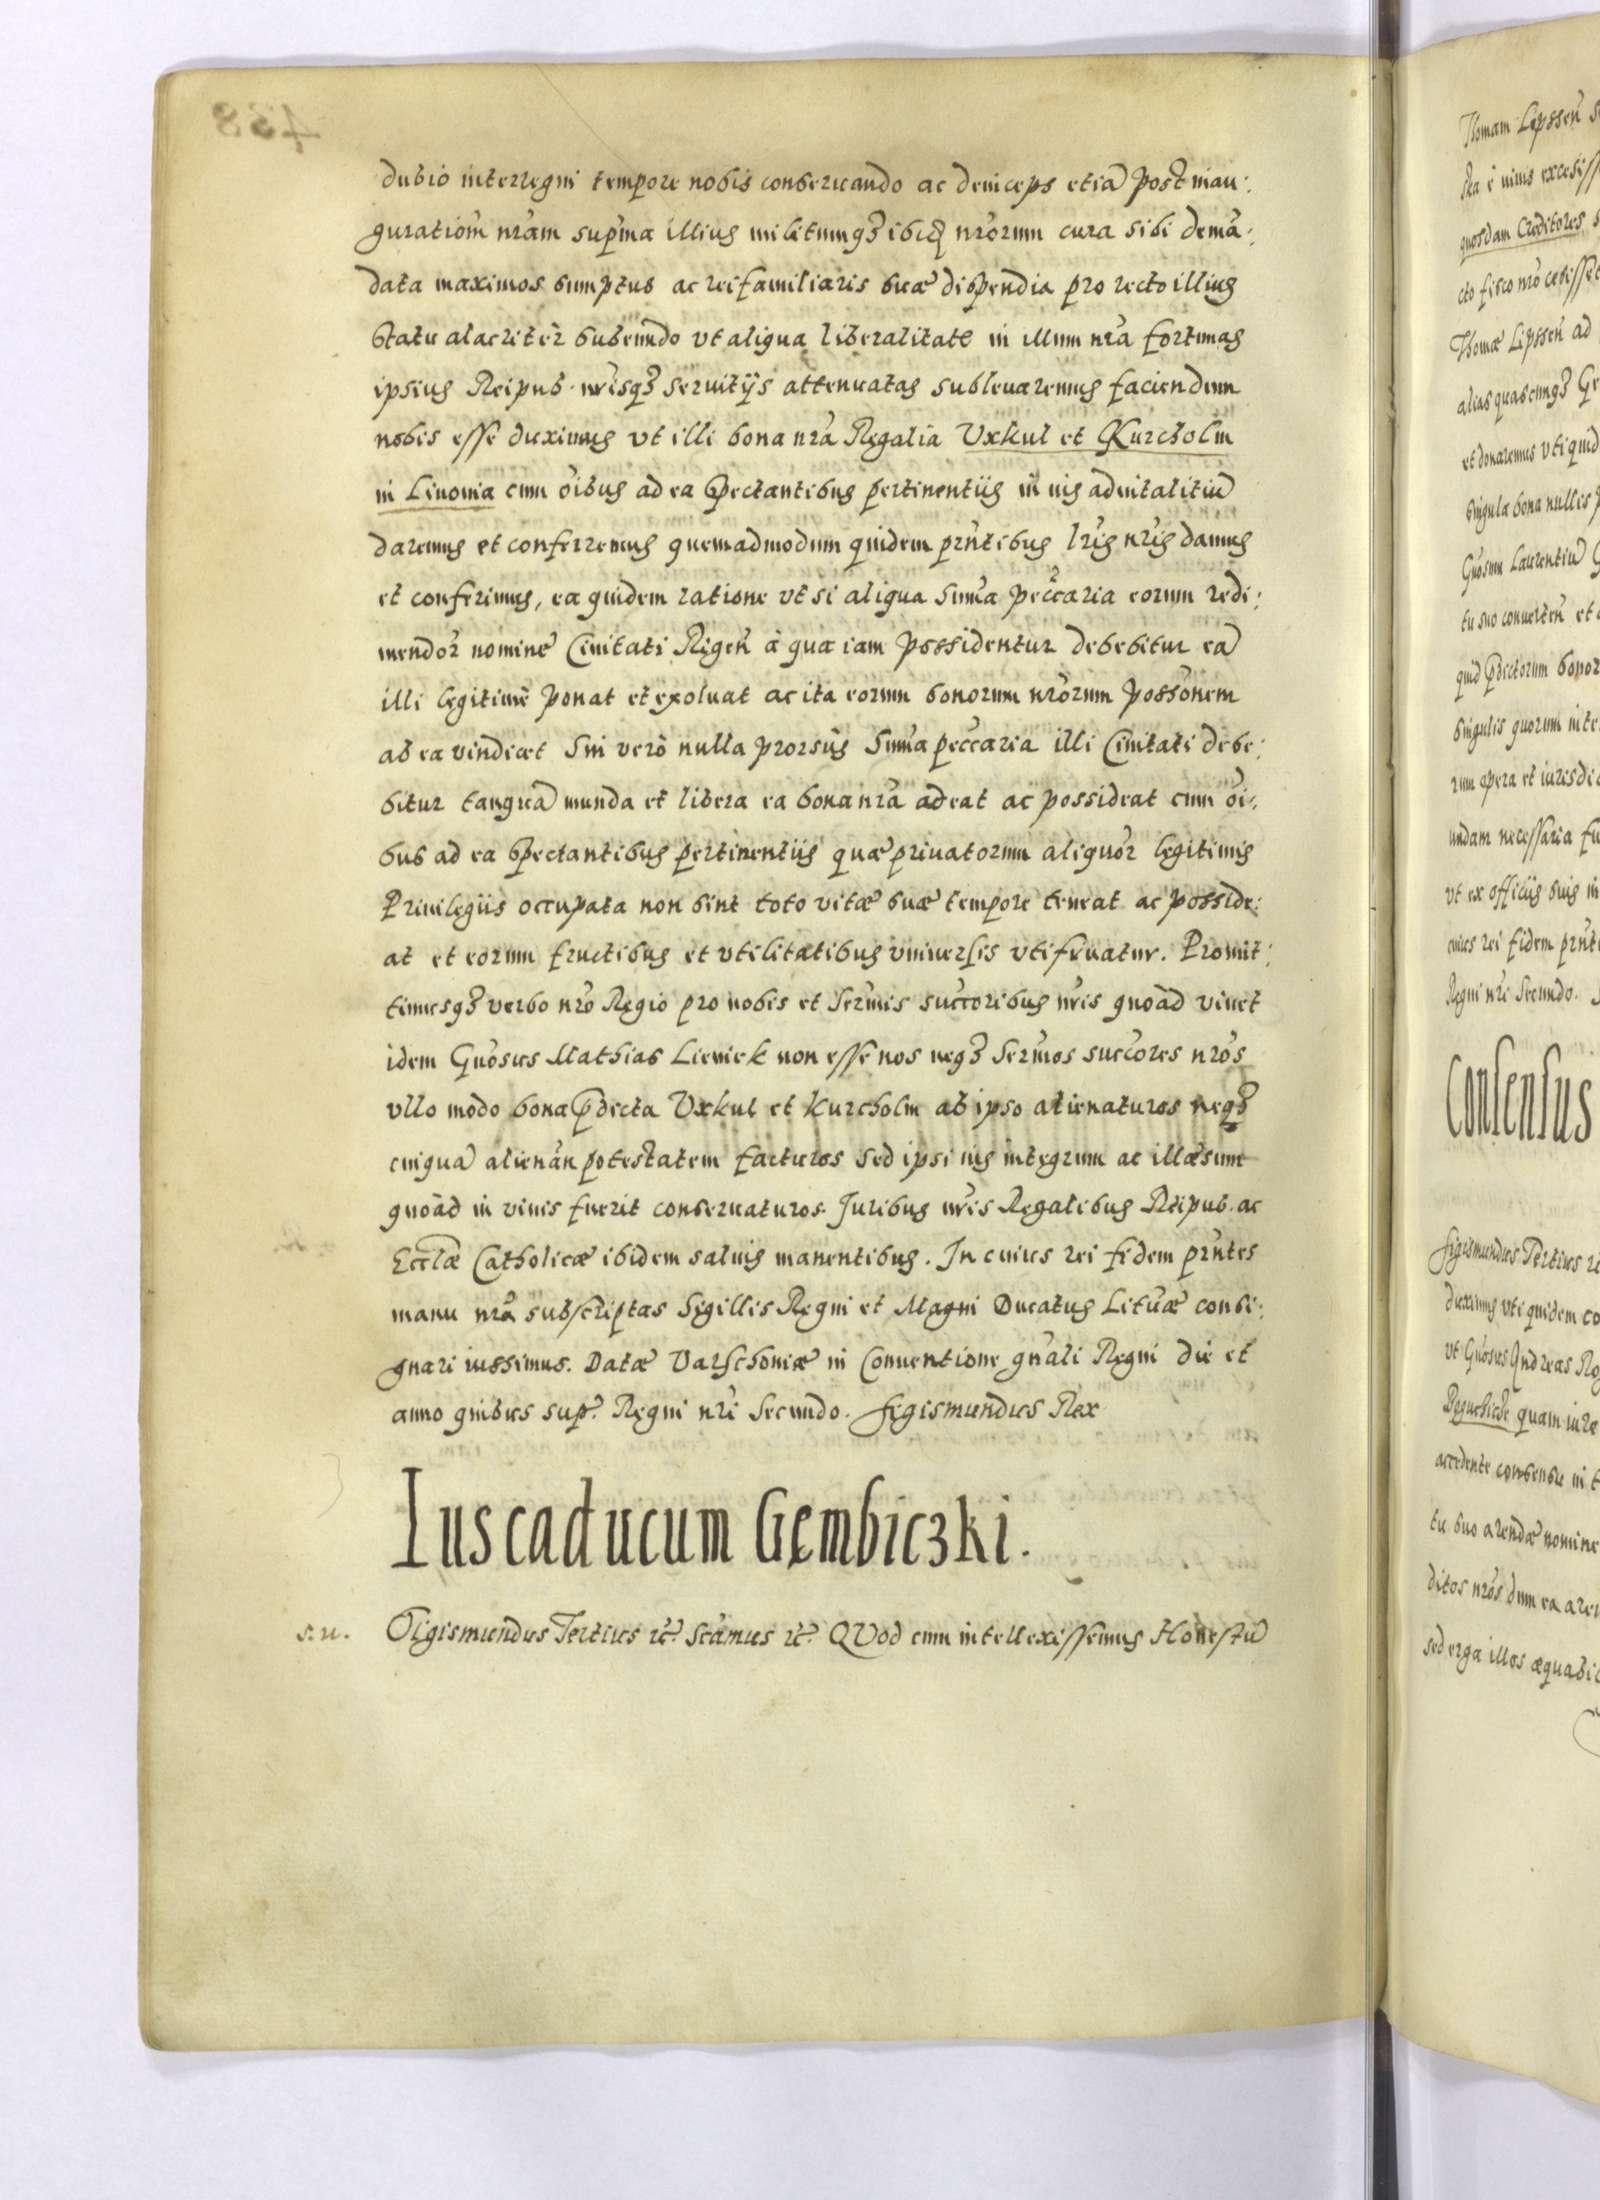 dubio interregni tempore nobis conservando ac deinceps etiã post inau:
guratiom̃ nrãm supr̃ma illius militumqȝ ibidẽ nrõrum cura sibi demã:
data maximos sumptus ac rei familiaris suæ dispendia pro recto illius
statu alacritèr subeundo vt aliqua liberalitate in illum nrã fortunas
ipsius Reipub. nrisqȝ seruitijs attenuatas subleuaremus faciendum
nobis esse duximus vt illi bona nrã Regalia Vxkul et Kurcholm
in Liuonia cum oĩbus ad ea spectantibus pertinentiis in uis aduitalitiũ
daremus et conferremus quemadmodum quidem prñtibus lrĩs nrĩs damus
et conferimus, ea quidem ratione vt si aliqua Sum̃a pec̃caria eorum redi:
mendor̃ nomine Ciuitati Rigeñ à qua iam possidentur debebitur eã
illi legitimè ponat et exoluat ac ita eorum bonorum nrõrum possonem̃
ab ea vindicet Sin verò nulla prorsùs Sum̃a pec̃caria illi Ciuitati debe:
bitur tanquã munda et libera ea bona nrã adeat ac possideat cum oĩ:
bus ad ea spectantibus pertinentiis quæ priuatorum aliquor̃ legitimis
Priuilegiis occupata non sint toto vitæ suæ tempore teneat ac posside:
at et eorum fructibus et vtilitatibus vniuersis vtifruatur. Promit:
timusqȝ verbo nrõ Regio pro nobis et Serm̃is succ̃oribus nrĩs quoàd viuet
idem Gñosus Mathias Lieniek non esse nos neqȝ Serm̃os succ̃ores nrõs
vllo modo bona p̃decta Vxkul et Kurcholm ab ipso alienaturos neqȝ
cuiquã alienañ potestatem facturos sed ipsi ius integrum ac illæsum
quoàd in viuis fuerit conseruaturos. Juribus nrĩs Regalibus Reipub. ac
Eccl̃æ Catholicæ ibidem saluis manentibus. In cuius rei fidem prñtes
manu nrã subscriptas Sigillis Regni et Magni Ducatus Lituæ̃ consi:
gnari iussimus. Datæ Varschoniæ in Conuentione gñali Regni die et
anno quibus supr̃. Regni nrĩ Secundo. Sigismundus Rex
Ius caducum Gembiczki.
s. u. Sigismundus Tertius rc̃. Scãmus rc̃. QVod cum intellexissemus Honestũ
Thomam Lipssen̄
quosdam Creditores
cto fisco nrõ cessisset
Thomæ Lipssen̄ ad
alias quascunqȝ
et donaremus vti quid
singula bona nullis
Gñosum Laurentiũ
tu suo conuerten̄ et
quid p̃dictorum bonor
singulis quorum inte
rum opera et iurisdi
undam necessaria fu
vt ex officiis suis in
cuius rei fidem prñt
Regni nrĩ Secundo.
Consensus
Sigismundus Tertius rc
duximus vti quidem co
vt Gñosus Andreas Ro
quam iure
accedente consensu in
tu suo arendæ nomine
ditos nrõs dum ea are
sed erga illos æquabi